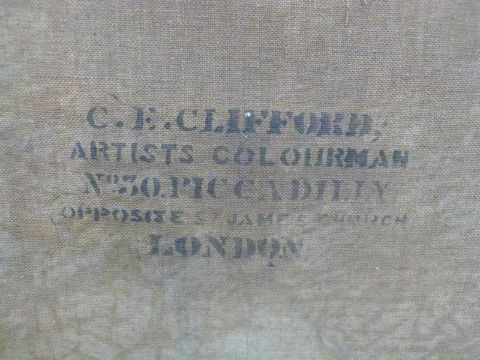 C. E. CLIFFORD,
ARTISTS COLOURMAN
No. 30. PICCADILLY
OPPOSITE ST JAMES CHURCH
LONDON